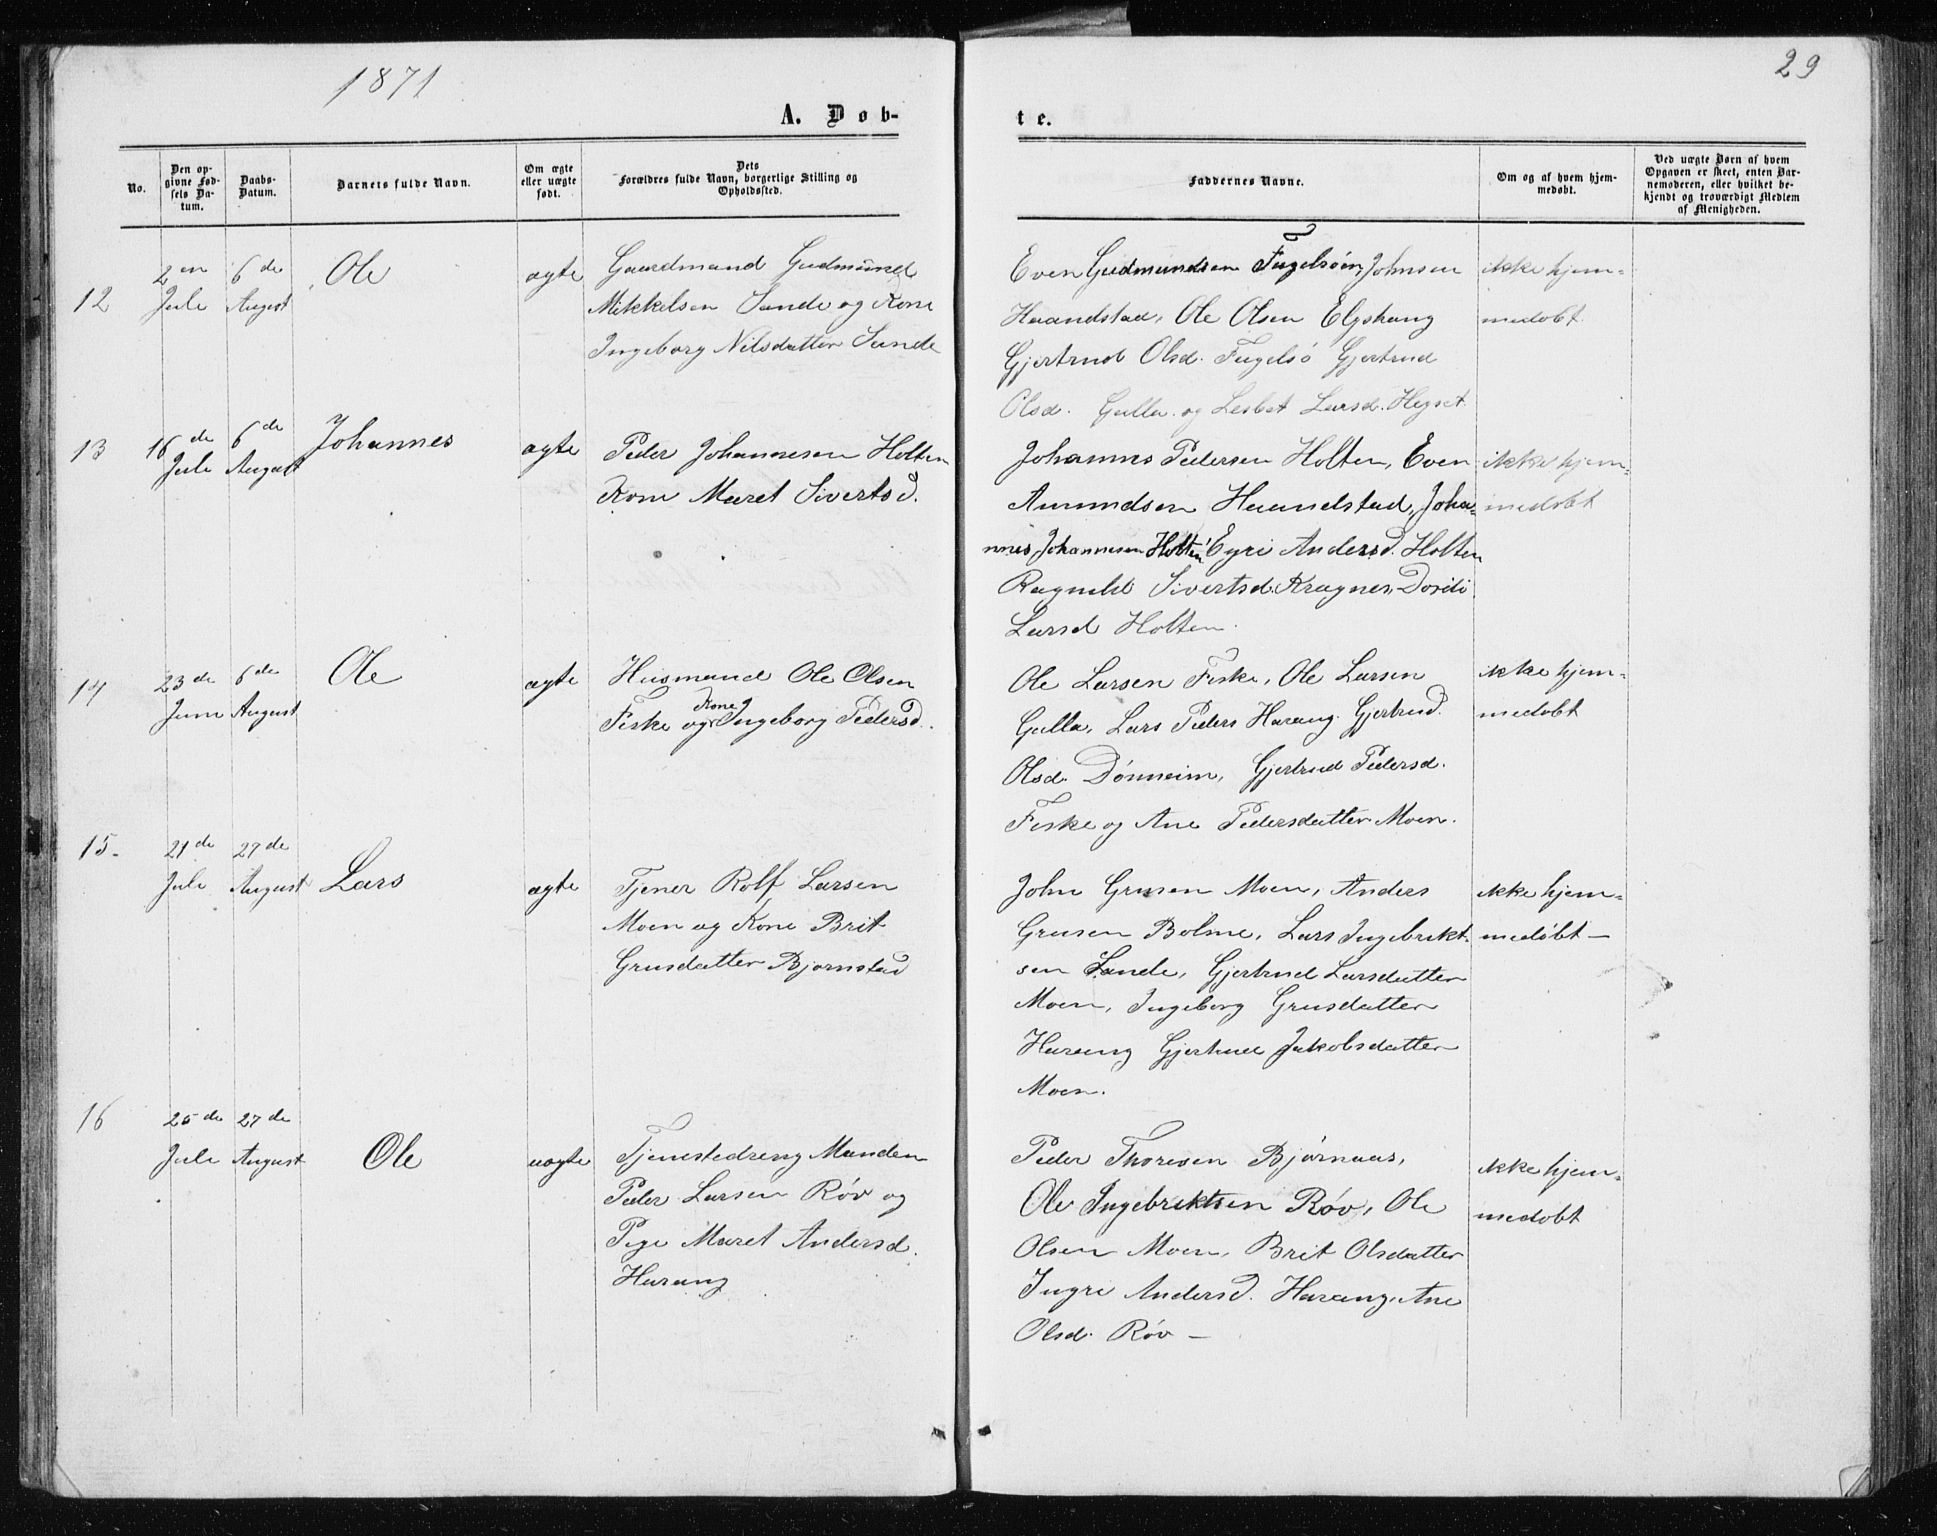 1871
29
A. Døb-
te.
No.
Den op-
givne Fød-
sels Da-
tum.
Daabs-
Datum.
Barnets fulde Navn.
Om ægte
eller uægte
født.
Dets
Forældres fulde Navn, borgerlige Stilling og
Opholdssted.
Faddernes Navne.
Om og af hvem hjem-
medøbt.
Ved uægte Børn af hvem
Opgaven er skeet, enten Bar-
nemoderen, eller hvilket be-
kjendt og troværdigt Medlem
af Menigheden.
12
2en
Juli
6de
August
Ole
ægte
Gaardmand Gudmund
Mikkelsen Sande og Kone
Ingeborg Nilsdatter Sande
Even Gudmundsen Fugelsöen, Johnsen
Haandstad, Ole Olsen Elgshaug
Gjertrud Olsd. Fugelsö Gjertrud
Olsd. Gulla og Lesbet Larsd. Hegset
ikke hjem=
medøbt
13
16de
Juli
6de
August
Johannes
ægte
Peder Johannesen Holten
Kone Maret Sivertsd.
Johannes Pedersen Holten, Even
Amundsen Haandstad, Joha=
nnes Johannesen Holten, Eyri Andersd. Holten
Ragnild Sivertsd. Kragnes, Dordi
Larsd Holten.
ikke hjem=
medøbt
14
23de
Juni
6de
August
Ole
ægte
Husmand Ole Olsen
Fiske og Kone Ingeborg Pedersd.
Ole Larsen Fiske, Ole Larsen
Gulla, Lars Peders Harang. Gjertrud.
Olsd. Dönneim, Gjertrud Pedersd.
Fiske og Ane Pedersdatter Moen.
ikke hjem=
medøbt
15.
21de
Juli
27de
August
Lars
ægte
Tjener Rolf Larsen
Moen og Kone Brit
Grusdatter Bjørnstad
John Grusen Moen, Anders
Grusen Bolme, Lars Ingebrikt-
sen Sande, Gjertrud Larsdatter
Moen, Ingeborg Grusdatter
Harang Gjertrud Jakobsdatter
Moen.
ikke hjem=
medøbt—
16
25de
Juli
27de
August
Ole
uægte
Tjenestedreng Manden
Peder Larsen Röv og
Pige Maret Andersd.
Harang
Peder Thoresen Bjørnaas,
Ole Ingebriktsen Röv, Ole
Olsen Moen, Brit Olsdatter
Ingri Andersd. Harang, Ane
Olsd. Röv —
ikke hjem=
medøbt